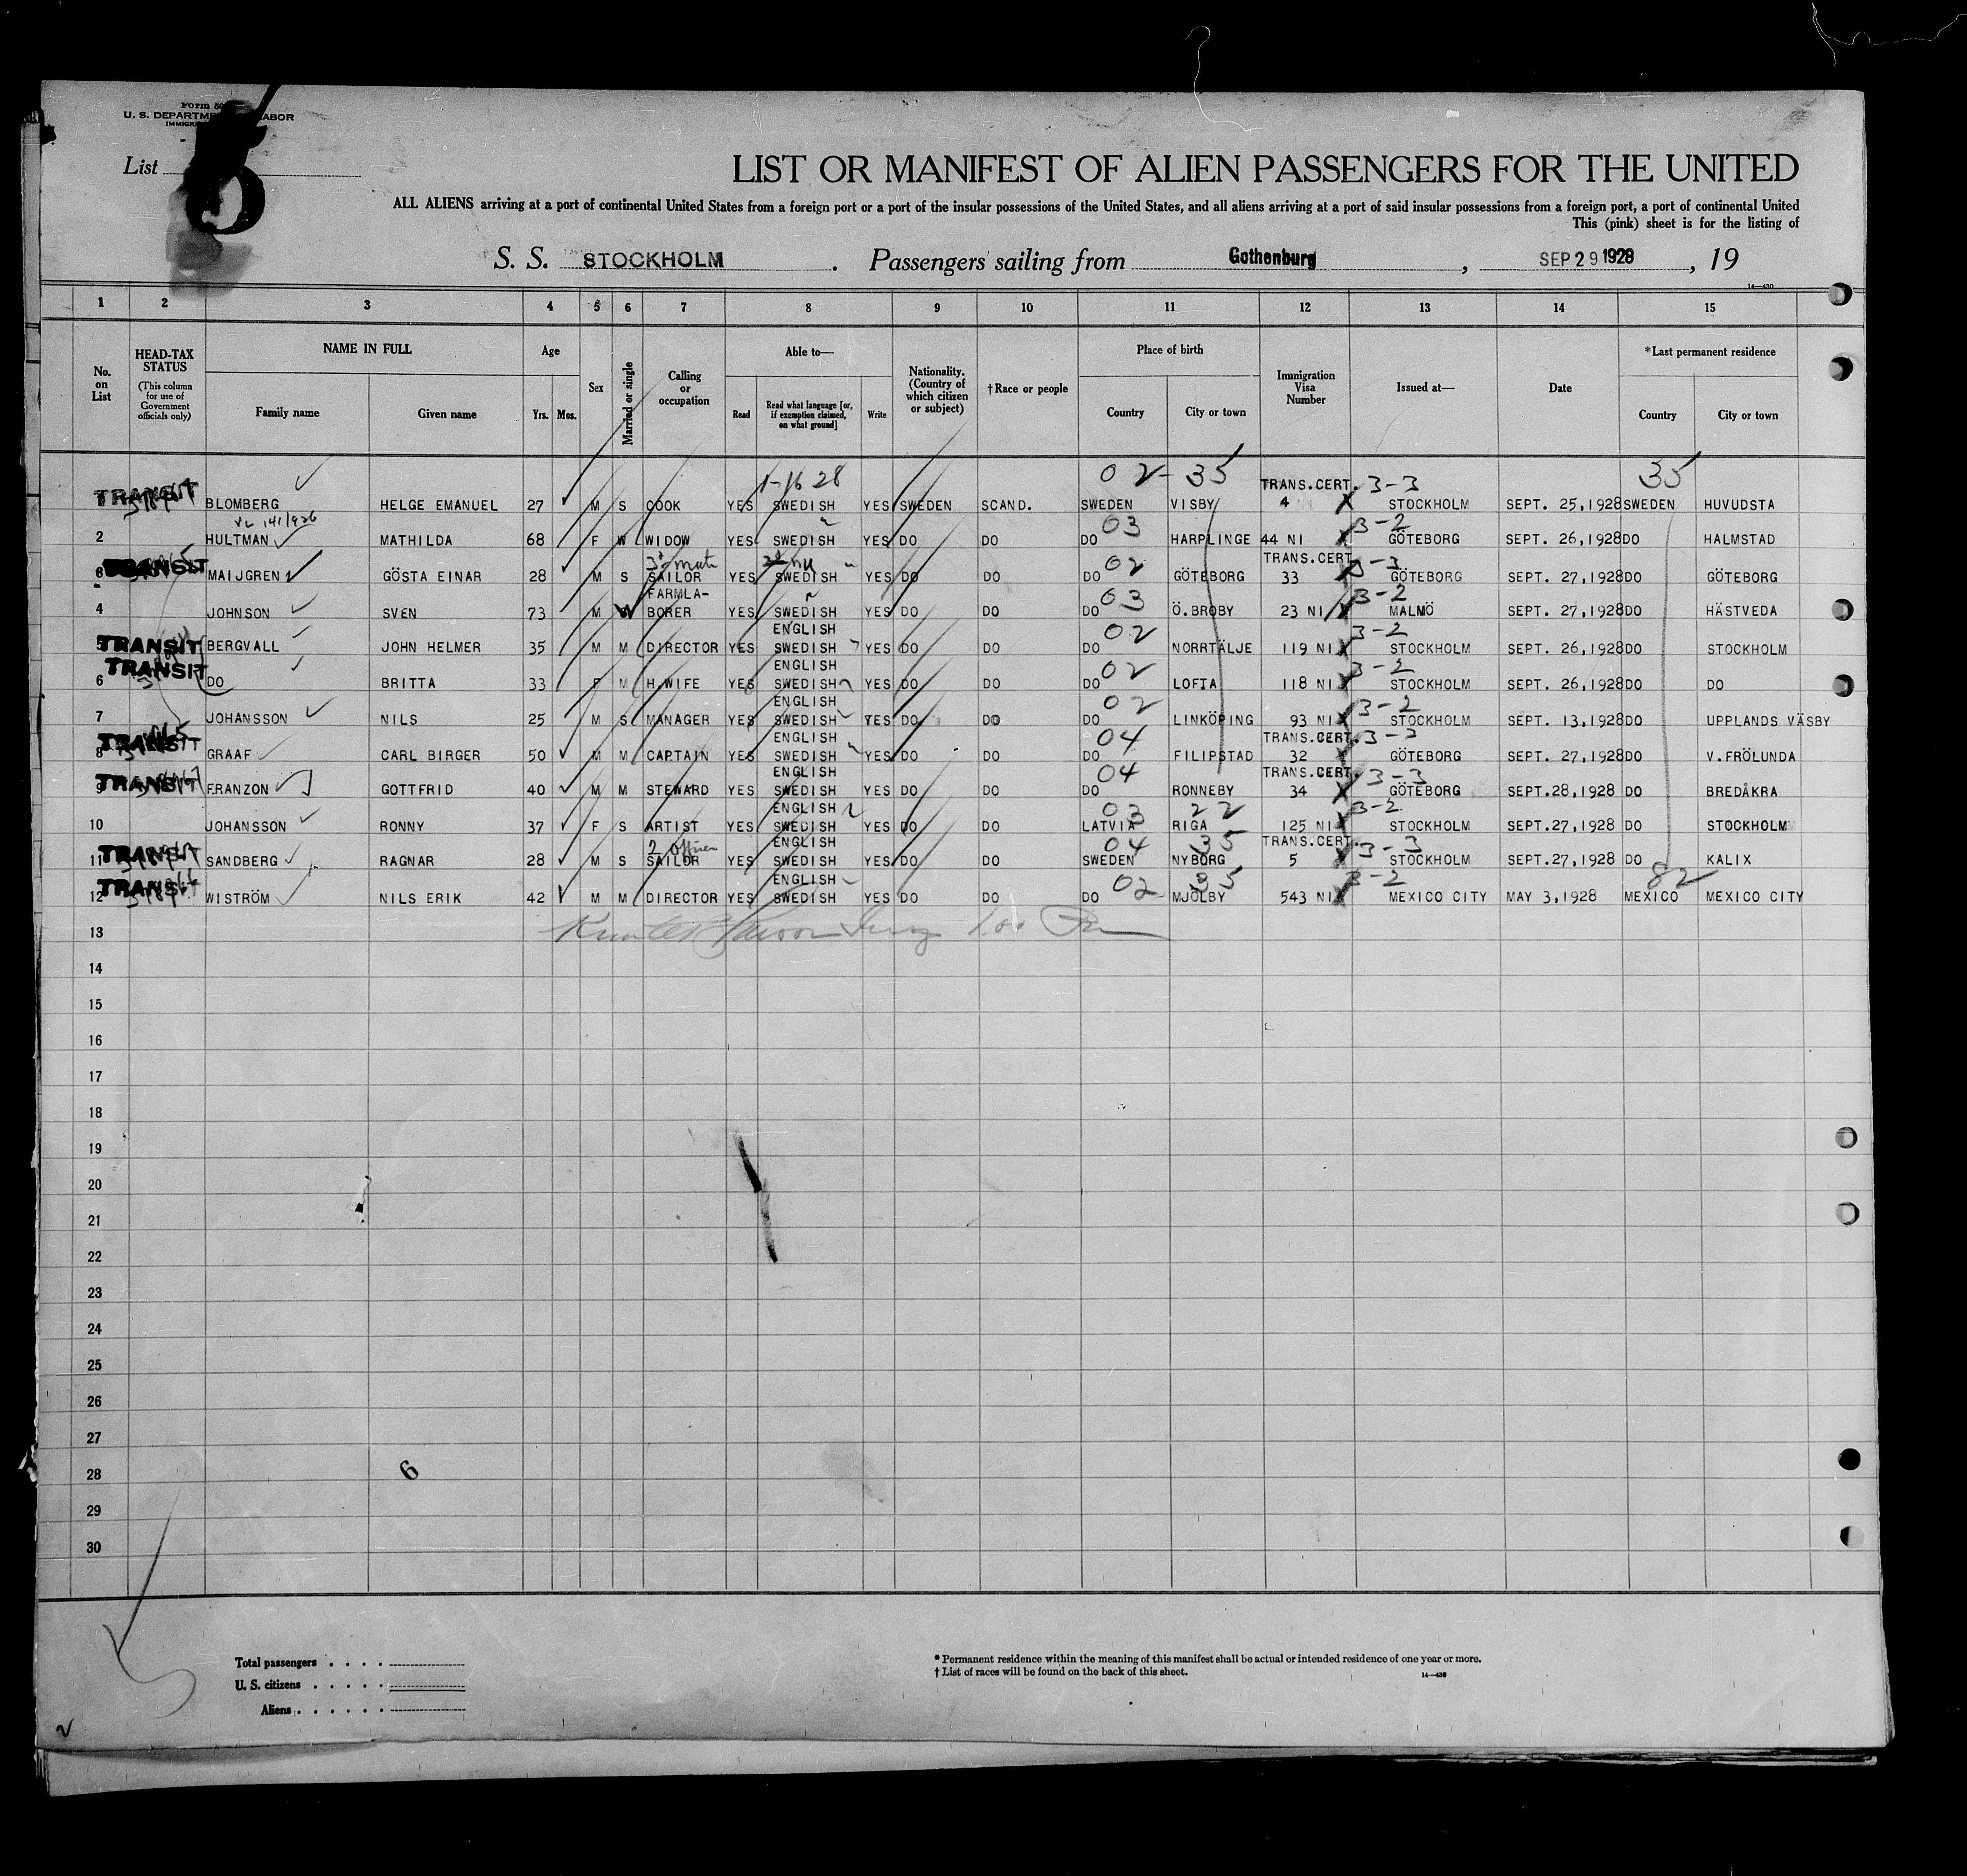 Form 50
U. S. DEPARTM LABOR
List
5
LIST OR MANIFEST OF ALIEN PASSENGERS FOR THE UNITED
ALL ALIENS arriving at a port of continental United States from a foreign port or a port of the insular possessions of the United States, and all aliens arriving at a port of said insular possessions from a foreign port, a port of continental United
This (pink) sheet is for the listing of
S. S. STOCKHOLM. Passengers sailing from Gothenburg, SEP 29 1928, 19
14—430
1 2 3 4 5 6 7 8 9 10 11 12 13 14 15
No. on List
HEAD-TAX STATUS (This column for use of Government officials only)
NAME IN FULL
Family name Given name
Age
Yrs. Mos.
Sex
Married or single
Calling or occupation
Able to—
Read Read what language [or, if exemption claimed, on what ground] Write
Nationality. (Country of which citizen or subject)
†Race or people
Place of birth
Country City or town
Immigration Visa Number
Issued at—
Date
*Last permanent residence
Country City or town
1-16 28 02-35 35
TRANSIT BLOMBERG HELGE EMANUEL 27 M S COOK YES SWEDISH YES SWEDEN SCAND. SWEDEN VISBY TRANS.CERT. 4 3-3 STOCKHOLM SEPT. 25,1928 SWEDEN HUVUDSTA
2 HULTMAN MATHILDA 68 F W WIDOW YES SWEDISH YES DO DO DO 03 HARPLINGE 44 NI 3-2 GÖTEBORG SEPT. 26,1928 DO HALMSTAD
TRANSIT MAIJGREN GÖSTA EINAR 28 M S SAILOR YES SWEDISH YES DO DO DO 02 GÖTEBORG TRANS.CERT. 33 3-3 GÖTEBORG SEPT. 27,1928 DO GÖTEBORG
4 JOHNSON SVEN 73 M W FARMLA-BORER YES SWEDISH YES DO DO DO 03 Ö.BROBY 23 NI 3-2 MALMÖ SEPT. 27,1928 DO HÄSTVEDA
5 TRANSIT BERGVALL JOHN HELMER 35 M M DIRECTOR YES ENGLISH SWEDISH YES DO DO DO 02 NORRTÄLJE 119 NI 3-2 STOCKHOLM SEPT. 26,1928 DO STOCKHOLM
6 TRANSIT DO BRITTA 33 F M H.WIFE YES ENGLISH SWEDISH YES DO DO DO 02 LOFTA 118 NI 3-2 STOCKHOLM SEPT. 26,1928 DO DO
7 JOHANSSON NILS 25 M S MANAGER YES ENGLISH SWEDISH YES DO DO DO 02 LINKÖPING 93 NI 3-2 STOCKHOLM SEPT. 13,1928 DO UPPLANDS VÄSBY
8 TRANSIT GRAAF CARL BIRGER 50 M M CAPTAIN YES ENGLISH SWEDISH YES DO DO DO 04 FILIPSTAD TRANS.CERT. 32 3-3 GÖTEBORG SEPT. 27,1928 DO V.FRÖLUNDA
9 TRANSIT FRANZON GOTTFRID 40 M M STEWARD YES ENGLISH SWEDISH YES DO DO DO 04 RONNEBY TRANS.CERT. 34 3-3 GÖTEBORG SEPT.28,1928 DO BREDÅKRA
10 JOHANSSON RONNY 37 F S ARTIST YES ENGLISH SWEDISH YES DO DO LATVIA 03 RIGA 22 125 NI 3-2 STOCKHOLM SEPT.27,1928 DO STOCKHOLM
11 TRANSIT SANDBERG RAGNAR 28 M S 2 Officer SAILOR YES ENGLISH SWEDISH YES DO DO SWEDEN 04 NYBORG 35 TRANS.CERT. 5 3-3 STOCKHOLM SEPT.27,1928 DO KALIX
12 TRANSIT WISTRÖM NILS ERIK 42 M M DIRECTOR YES ENGLISH SWEDISH YES DO DO DO 02 MJÖLBY 35 543 NI 3-2 MEXICO CITY MAY 3,1928 MEXICO 82 MEXICO CITY
13
14
15
16
17
18
19
20
21
22
23
24
25
26
27
28
6
29
30
Total passengers . . . .
U. S. citizens . . . . .
Aliens . . . . . .
* Permanent residence within the meaning of this manifest shall be actual or intended residence of one year or more.
† List of races will be found on the back of this sheet.
14—430